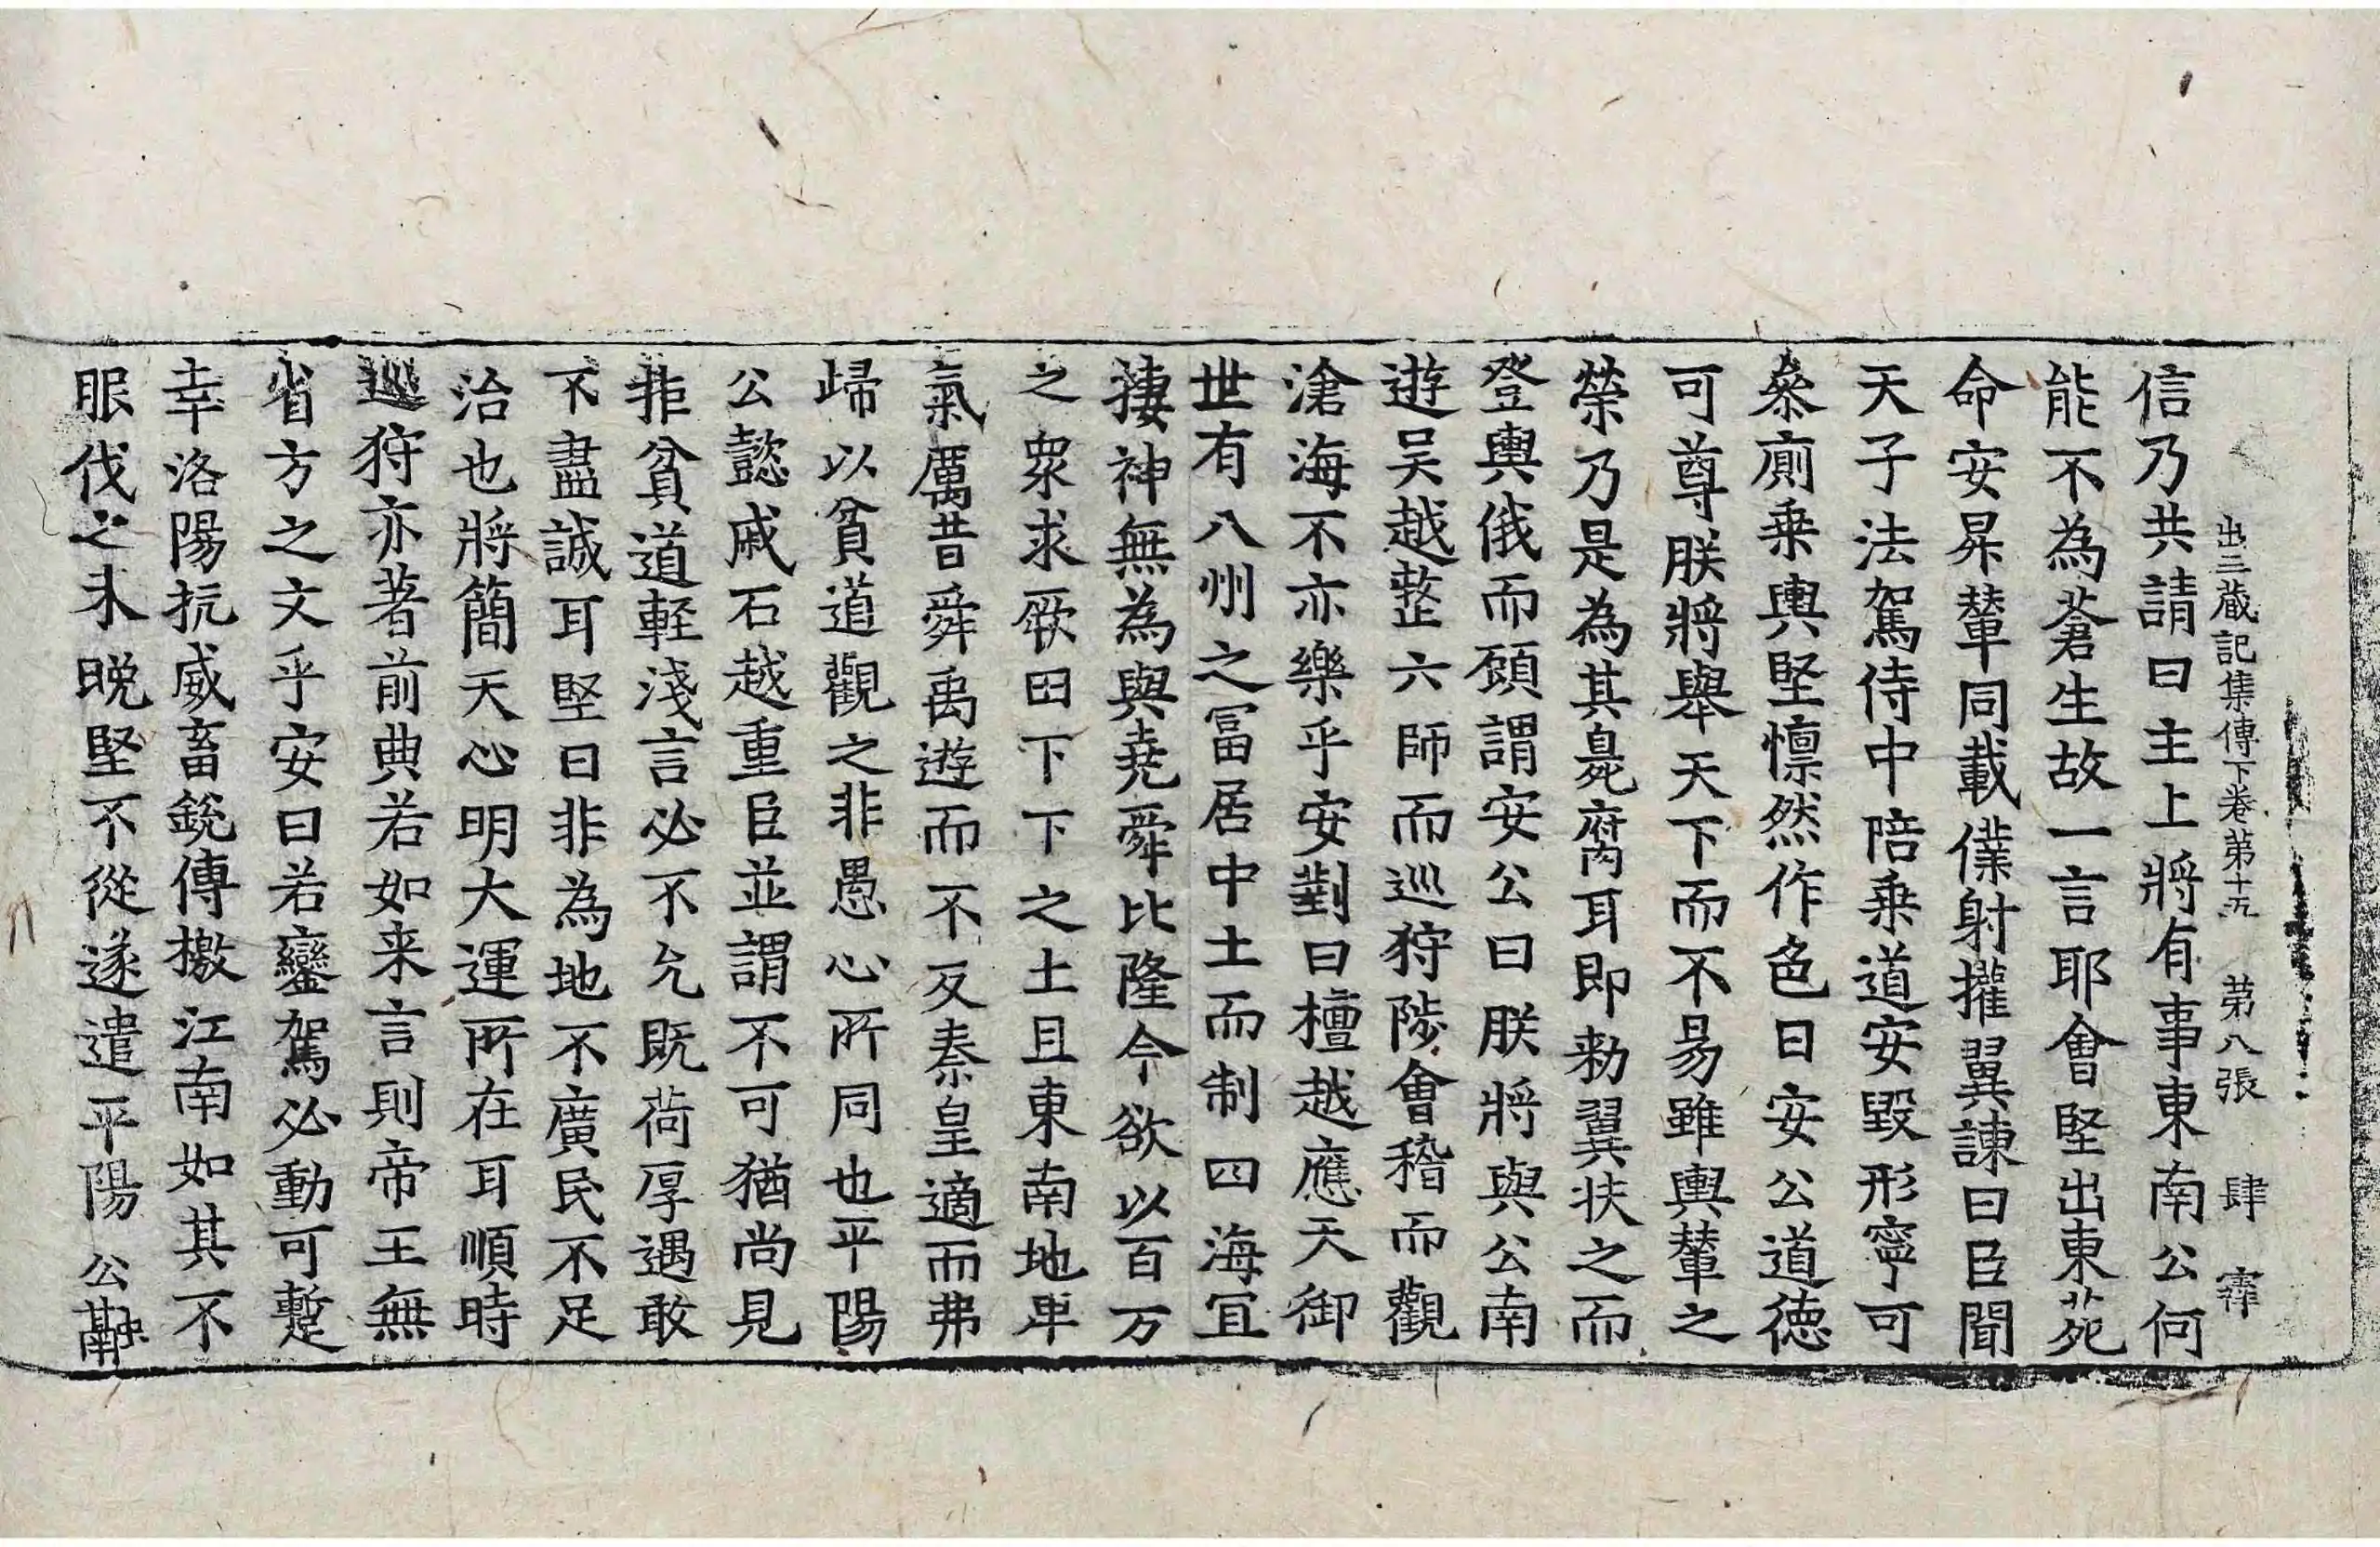 出三蔵記集傳下卷第十五 第八張 肆 寫
信乃共請曰主上將有事東南公何
能不為蒼生故一言耶會堅出東苑
命安昇輦同載僕射權翼諫曰臣聞
天子法駕侍中陪乗道安毀形寧可
叅廁乗輿堅懍然作色曰安公道德
可尊朕將舉天下而不易雖輿輦之
榮乃是為其臰腐耳即勑翼扶之而
登輿俄而顧謂安公曰朕將與公南
遊吴越整六師而巡狩陟會稽而觀
滄海不亦樂乎安對曰檀越應天御
世有八州之冨居中土而制四海冝
捿神無為與堯舜比隆今欲以百万
之衆求厥田下下之土且東南地卑
氣厲昔舜禹遊而不反秦皇適而弗
歸以貧道觀之非愚心所同也平陽
公懿戚石越重臣並謂不可猶尚見
拒貧道軽淺言必不允既荷厚遇敢
不盡誠耳堅曰非為地不廣民不足
治也將簡天心明大運所在耳順時
巡狩亦著前典若如来言則帝王無
省方之文乎安曰若鑾駕必動可蹔
幸洛陽抗威畜銳傳檄江南如其不
眼伐之未晚堅不從遂遣平陽公融